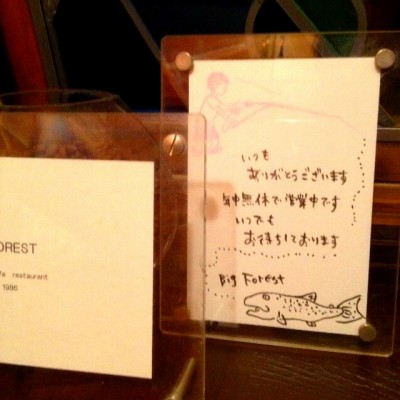 OREST
restaurant
1986
いつも
ありがとうございます
年中無休で営業中です
いつでも
お待ちしております
Big Forest